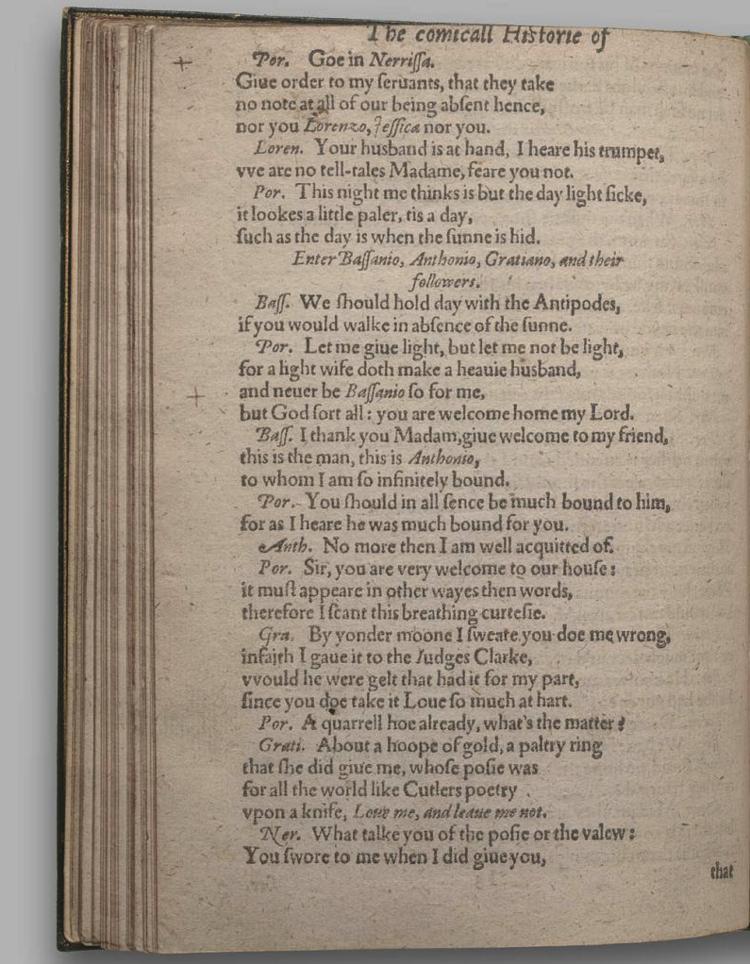 The comicall Historie of
Por. Goe in Nerriſſa.
Giue order to my ſeruants, that they take
no note at all of our being abſent hence,
nor you Lorenzo, Jeſſica nor you.
Loren. Your husband is at hand, I heare his trumpet,
vve are no tell-tales Madame, feare you not.
Por. This night me thinks is but the day light ſicke,
it lookes a little paler, tis a day,
ſuch as the day is when the ſunne is hid.
Enter Baſſanio, Anthonio, Gratiano, and their
followers.
Baſſ. We ſhould hold day with the Antipodes,
if you would walke in abſence of the ſunne.
Por. Let me giue light, but let me not be light,
for a light wife doth make a heauie huſband,
and neuer be Baſſanio ſo for me,
but God ſort all : you are welcome home my Lord.
Baſſ. I thank you Madam, giue welcome to my friend,
this is the man, this is Anthonio,
to whom I am ſo infinitely bound.
Por. You ſhould in all ſence be much bound to him,
for as I heare he was much bound for you.
Anth. No more then I am well acquitted of.
Por. Sir, you are very welcome to our houſe :
it muſt appeare in other wayes then words,
therefore I ſcant this breathing curteſie.
Gra. By yonder moone I ſweare you doe me wrong,
infaith I gaue it to the Judges Clarke,
vvould he were gelt that had it for my part,
ſince you doe take it Loue ſo much at hart.
Por. A quarrell hoe already, what's the matter ?
Grati. About a hoope of gold, a paltry ring
that ſhe did giue me, whoſe poſie was
for all the world like Cutlers poetry
vpon a knife, Loue me, and leaue me not.
Ner. What talke you of the poſie or the valew :
You ſwore to me when I did giue you,
that